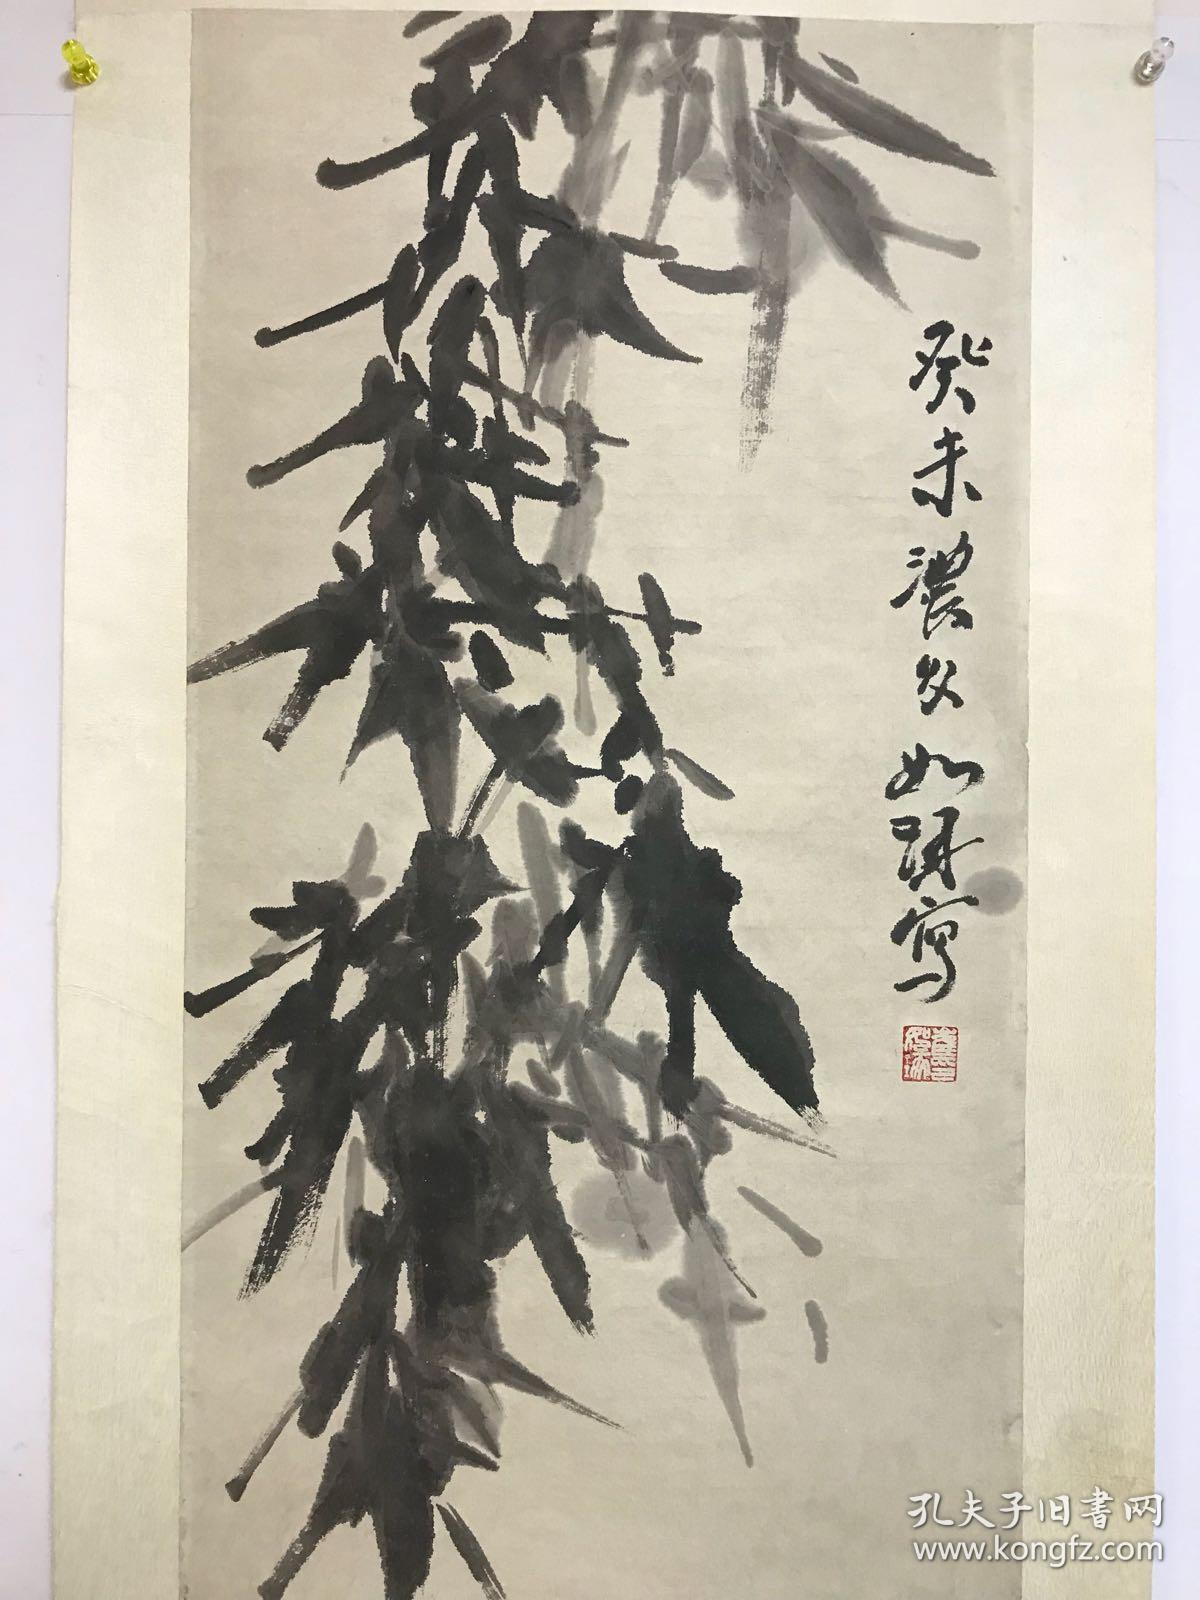 癸未濃父如琇寫
孔夫子旧書网
www.kongfz.com